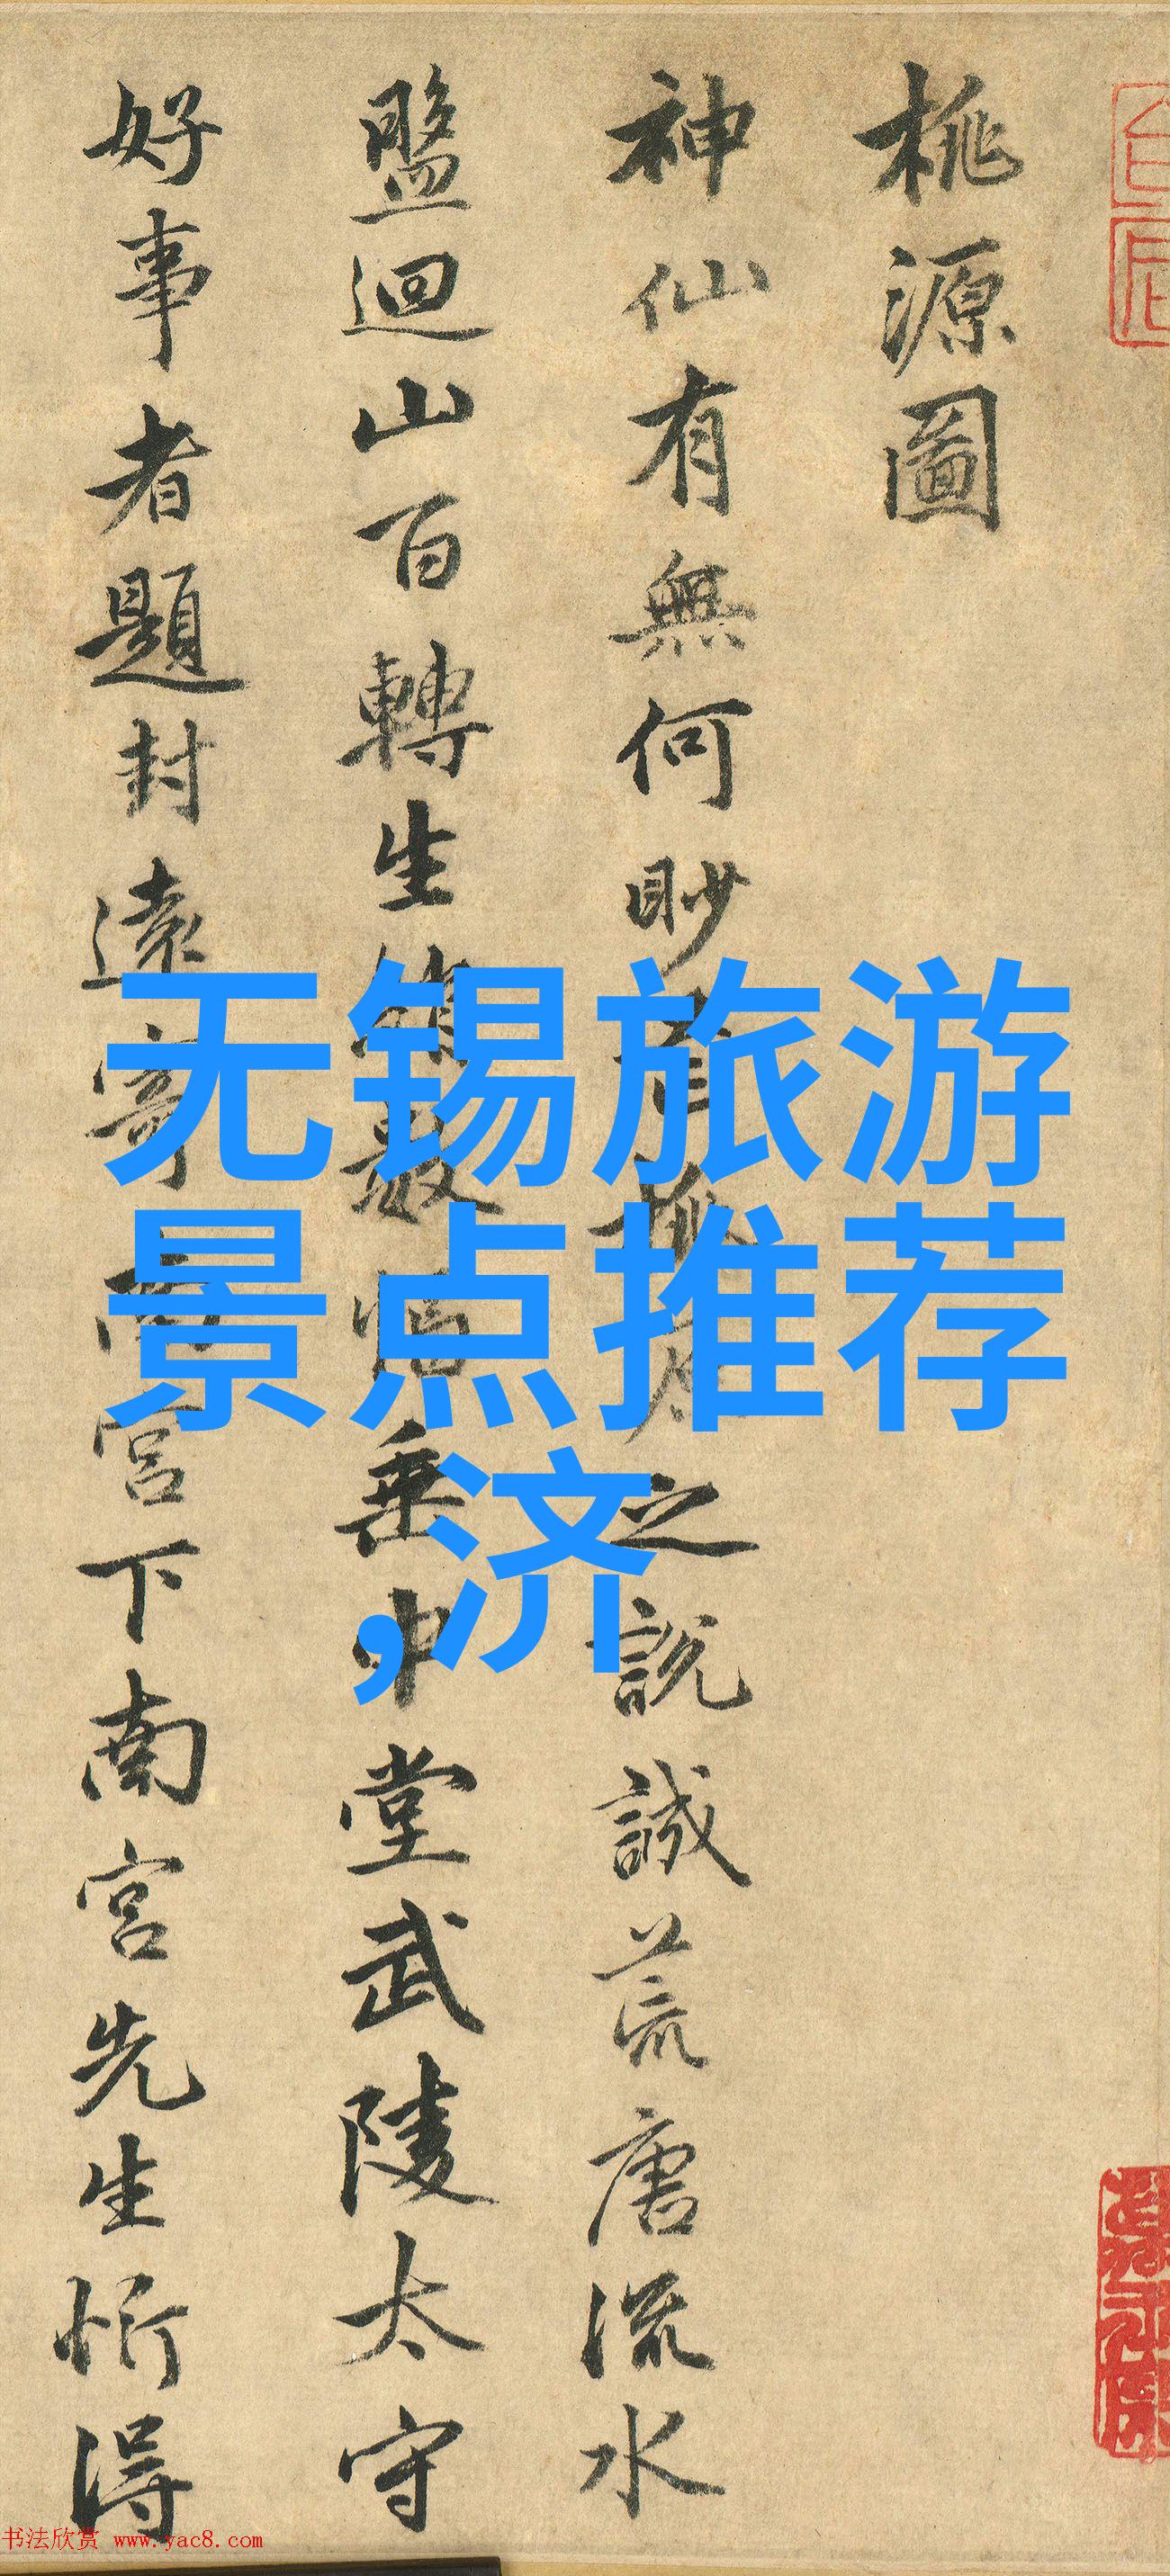 桃源圖
神仙有無何眇芒桃源之說誠荒唐流水
盤迴山百轉生綃數幅垂中堂武陵太守
好事者題封遠寄南宮下南宮先生忻得
无锡旅游
景点推荐
,济
书法欣赏 www.yac8.com